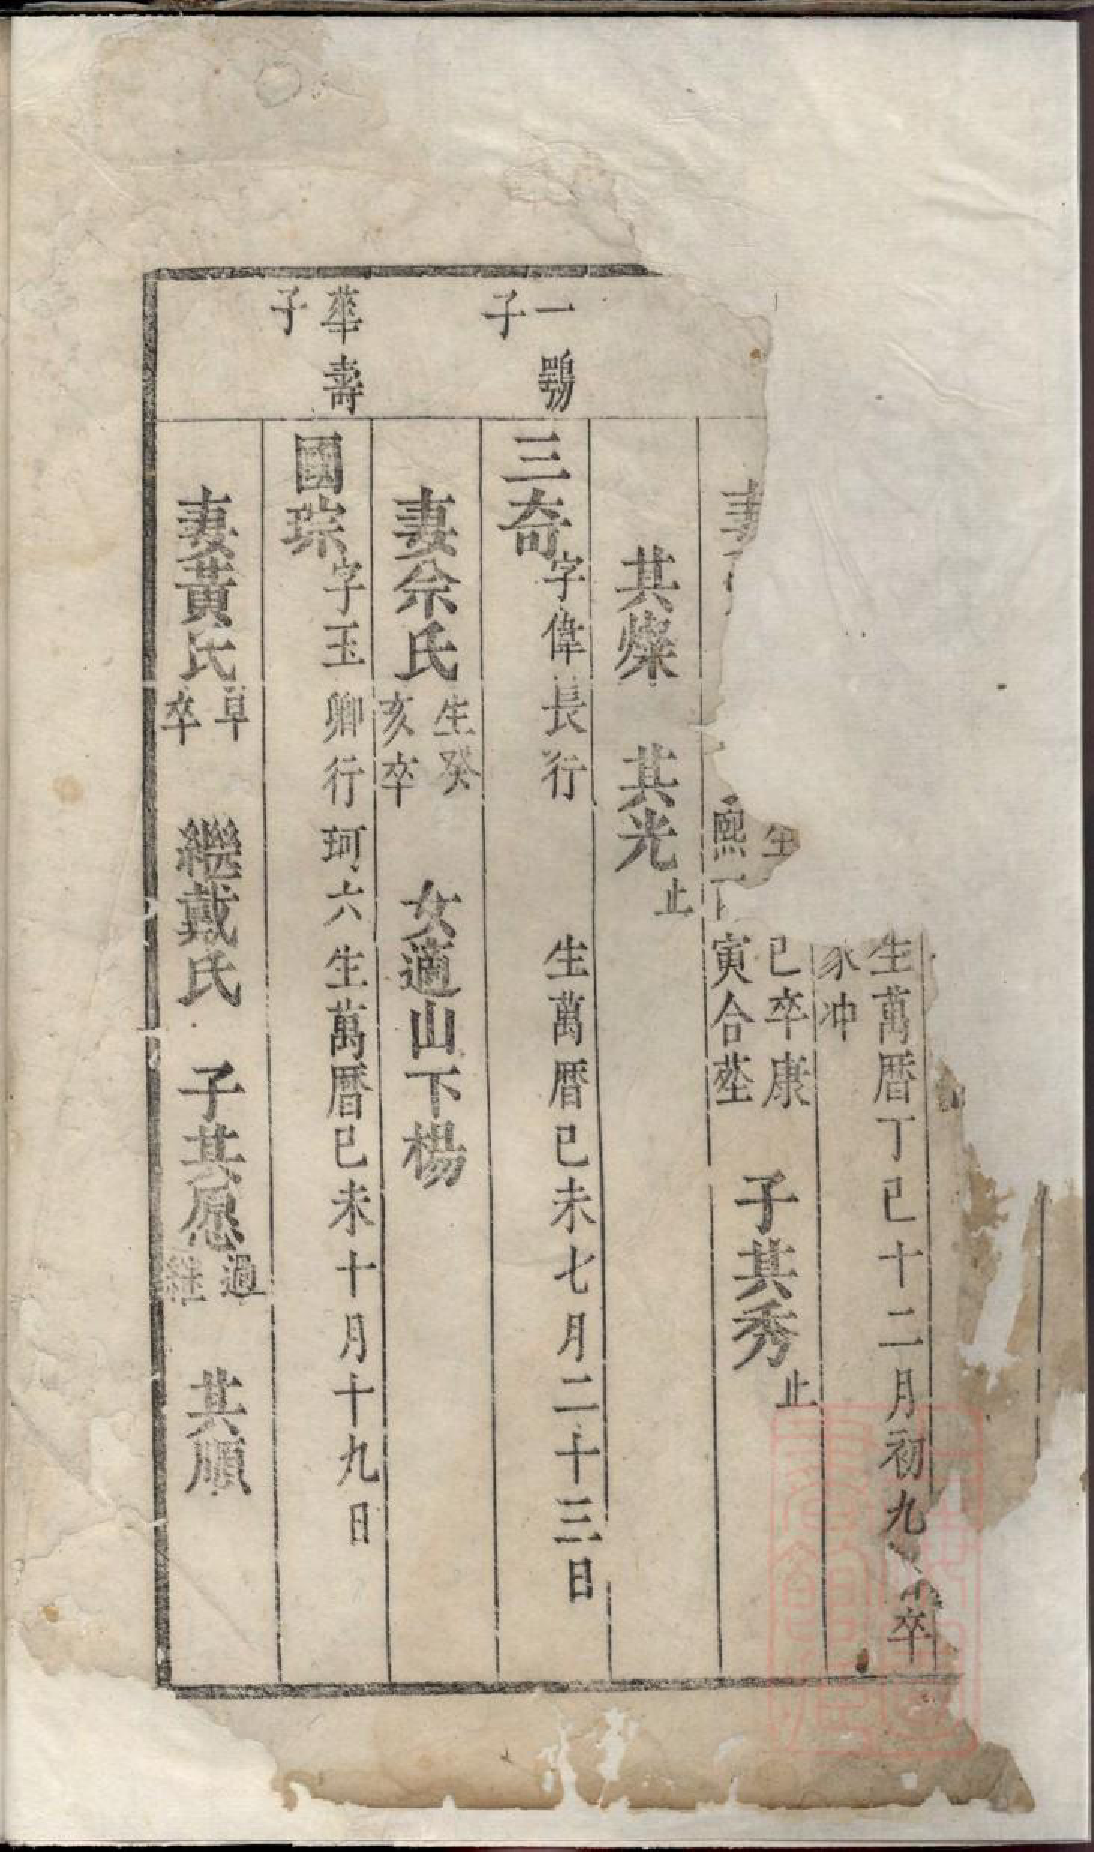 生萬曆丁巳十二月初九 卒
冲
妻 生 熙 巳卒康 寅合塟 子其秀 止
其燦 其光 止
一鶚子
三奇 字偉長行 生萬曆己未七月二十三日
妻佘氏 生癸 亥卒 女適山下楊
華壽子
國琮 字玉卿行珂六生萬曆己未十月十九日
妻黃氏 早卒 繼戴氏 子其愿 過繼 其順